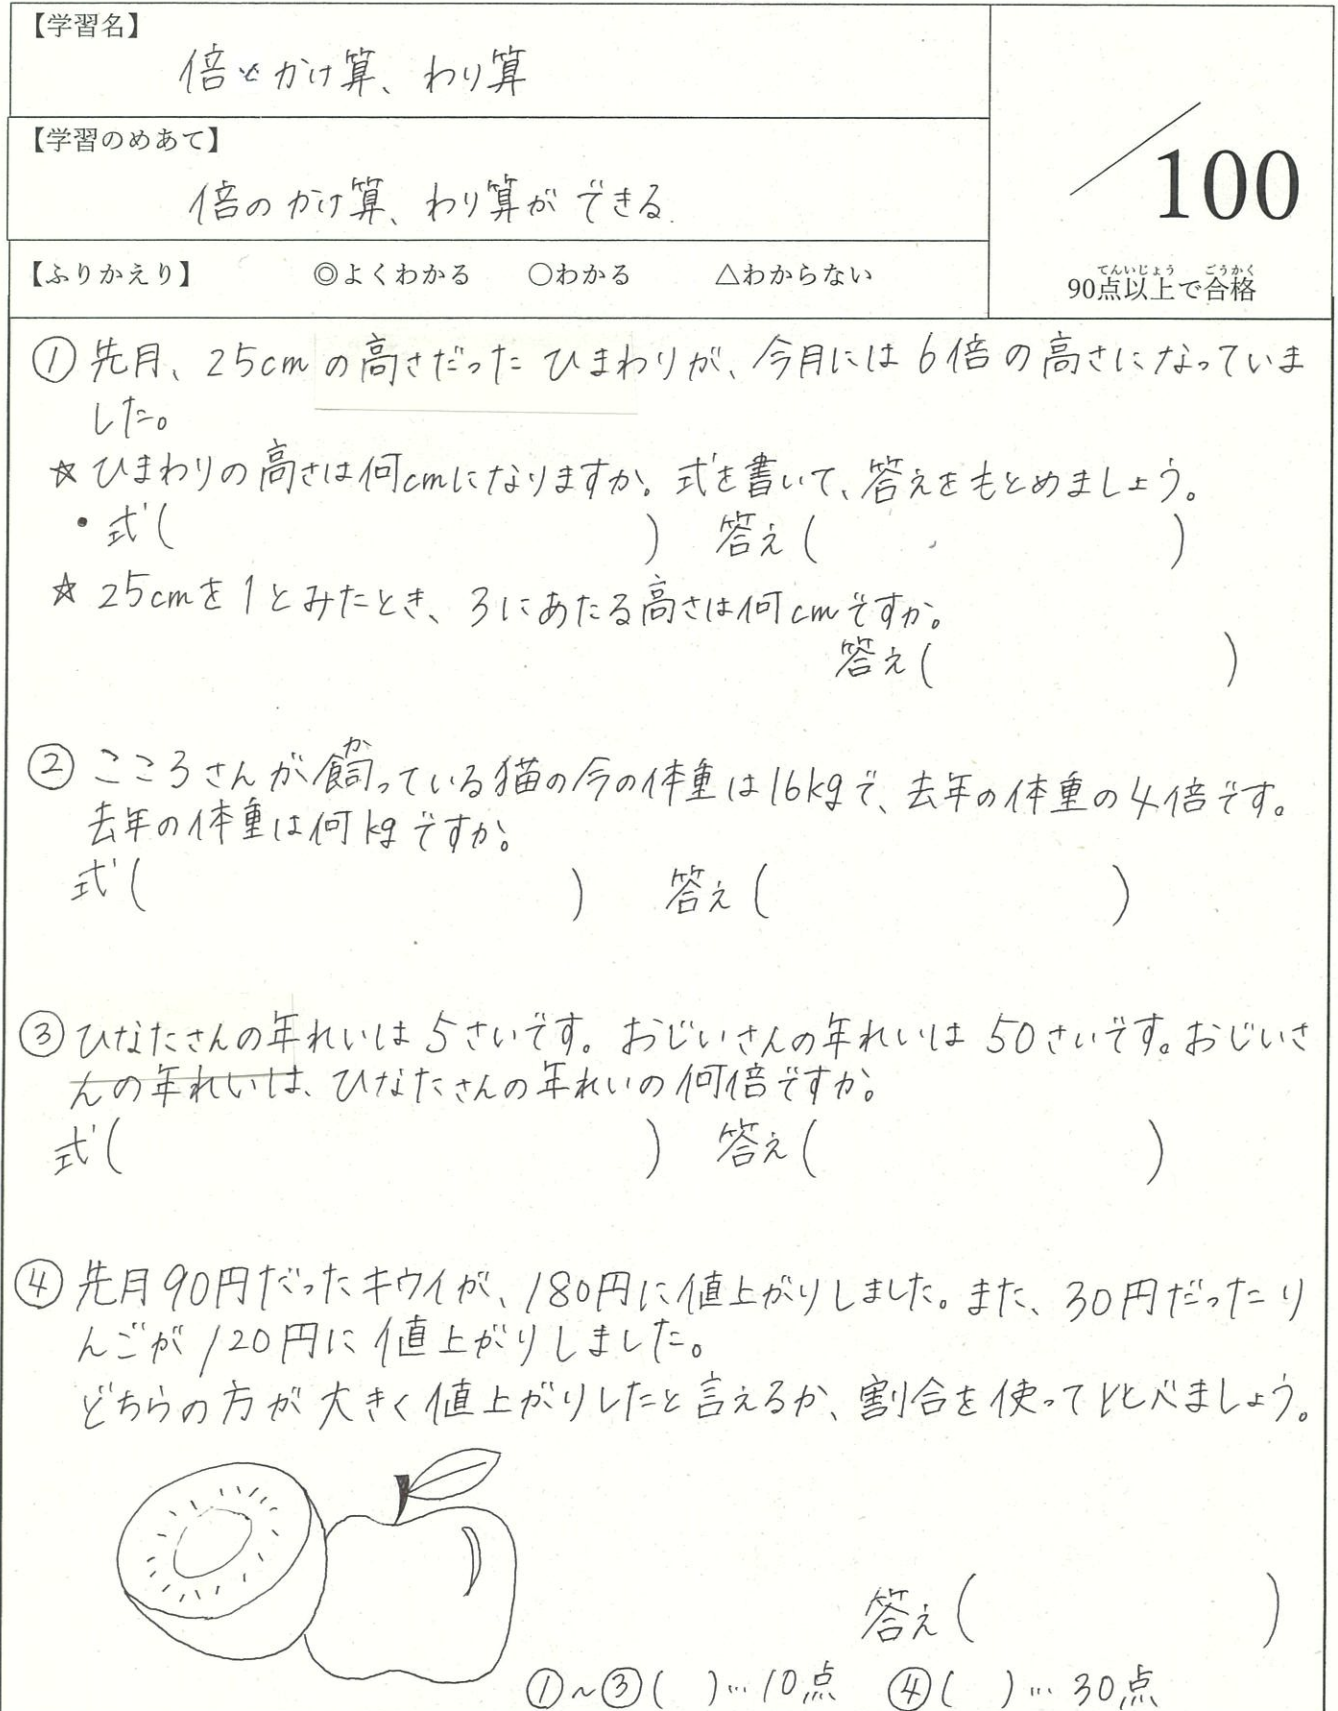 【学習名】
倍とかけ算、わり算
【学習のめあて】
倍のかけ算、わり算ができる.
【ふりかえり】 ◎よくわかる ○わかる △わからない
/100
てんいじょう ごうかく
90点以上で合格
① 先月、25cmの高さだったひまわりが、今月には6倍の高さになっていま
した。
☆ひまわりの高さは何cmになりますか。式を書いて、答えをもとめましょう。
・式( ) 答え( )
☆25cmを1とみたとき、3にあたる高さは何cmですか。
答え( )
か
② こころさんが飼っている猫の今の体重は16kgで、去年の体重の4倍です。
去年の体重は何kgですか。
式( ) 答え( )
③ ひなたさんの年れいは5さいです。おじいさんの年れいは50さいです。おじいさ
んの年れいは、ひなたさんの年れいの何倍ですか。
式( ) 答え( )
④ 先月90円だったキウイが、180円に値上がりしました。また、30円だったり
んごが120円に値上がりしました。
どちらの方が大きく値上がりしたと言えるか、割合を使って比べましょう。
答え( )
①~③( )…10点 ④( )…30点